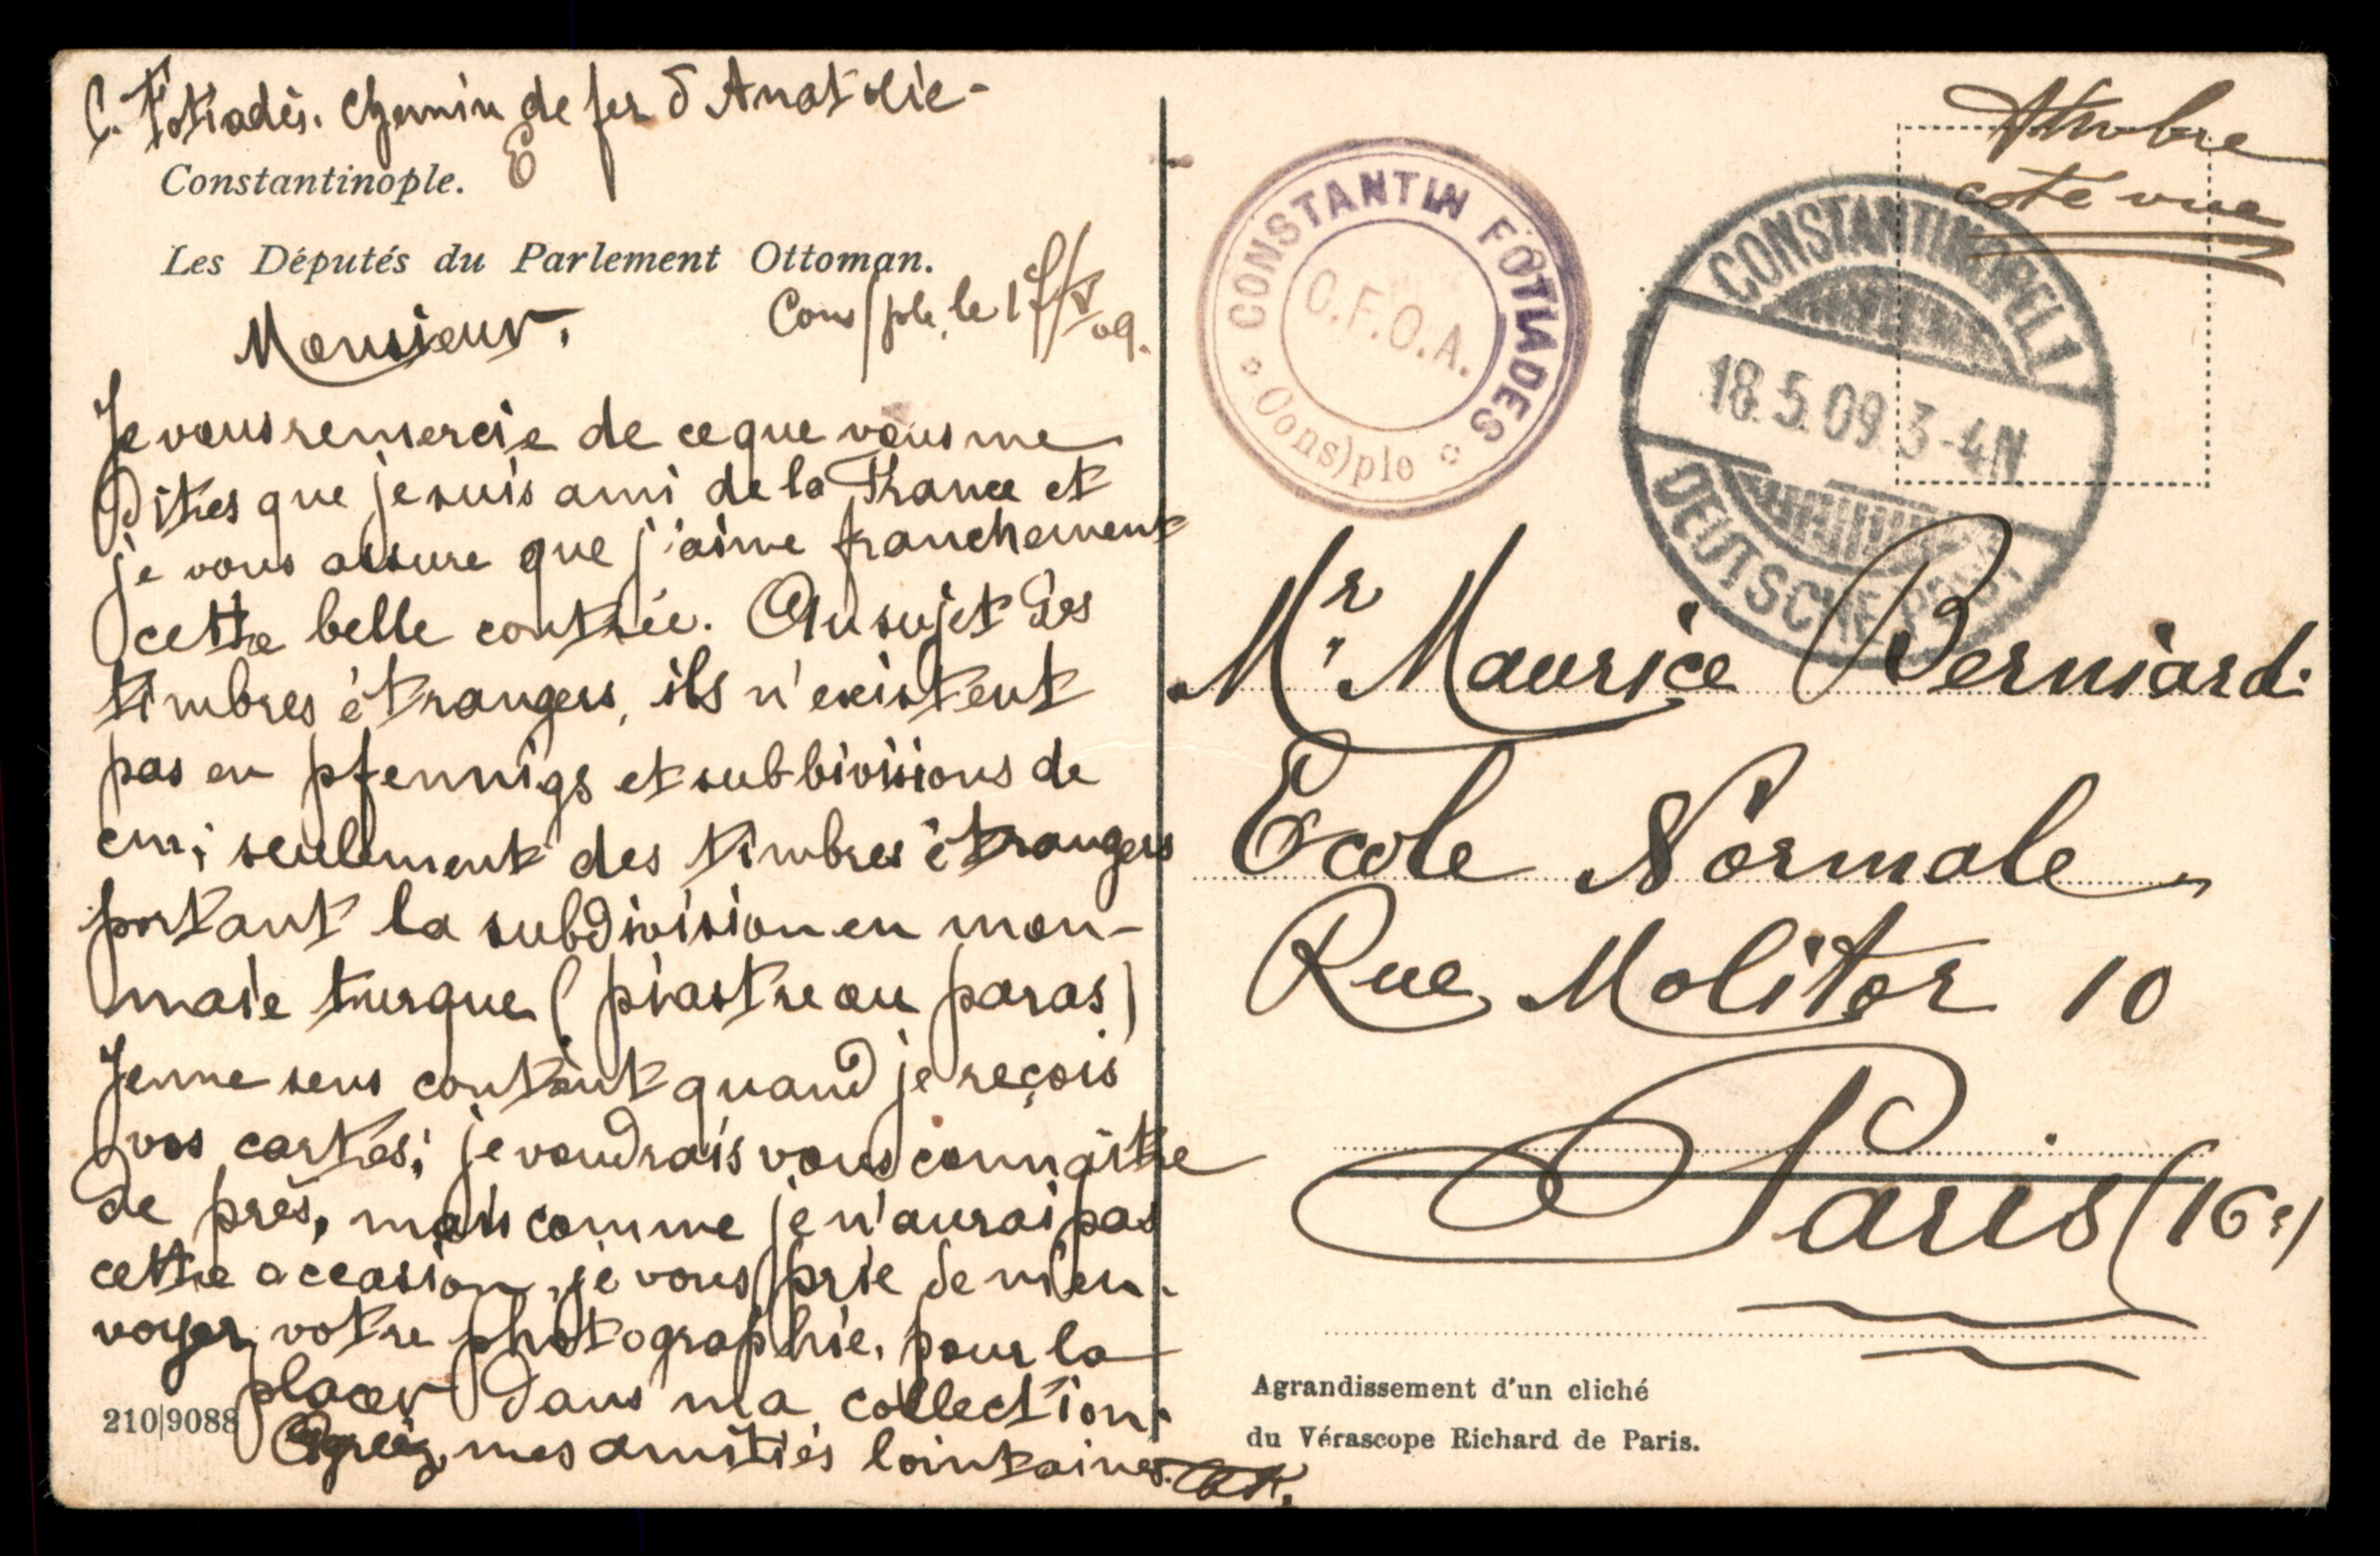 C. Fotiadès. Chemin de fer d'Anatolie-
Constantinople.
Les Députés du Parlement Ottoman.
Cons/ple, le 17/V 09.
Monsieur,
Je vous remercie de ce que vous me
dites que je suis ami de la France et
je vous assure que j'aime franchement
cette belle contrée. Au sujet des
timbres étrangers, ils n'existent
pas en pfennigs et subbivisions de
cm; seulement des timbres étrangers
portant la subdivision en mon-
naie turque (piastre ou paras)
Je me sens content quand je reçois
vos cartes; je voudrais vous connaître
de près, mais comme je n'aurai pas
cette occasion, je vous prie de m'en-
voyer votre photographie, pour la
placer dans ma collection.
Agréez, mes amitiés lointaines.
210|9088
CONSTANTIN FOTIADES
C.F.O.A.
Cons)ple
Timbre
coté vue
CONSTANTINOPEL 1
18.5.09. 3-4N
DEUTSCHE POST
Mr. Maurice Berniard.
Ecole Normale
Rue Molitor 10
Paris (16e)
Agrandissement d'un cliché
du Vérascope Richard de Paris.